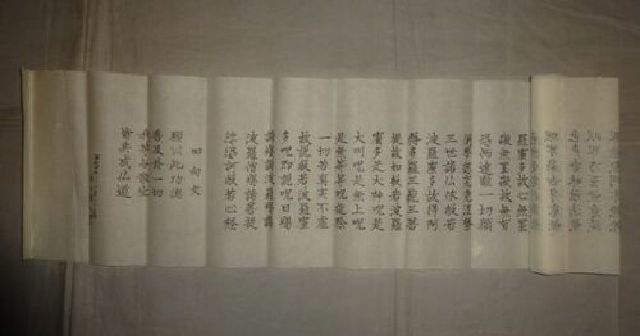 羅蜜多故心無罣
礙無罣礙故無有
恐怖遠離一切顛
倒夢想究竟涅槃
三世諸仏依般若
波羅蜜多故得阿
耨多羅三藐三菩
提故知般若波羅
蜜多是大神呪是
大明呪是無上呪
是無等等呪能除
一切苦真実不虚
故説般若波羅蜜
多呪即説呪曰羯
諦羯諦波羅羯諦
波羅僧羯諦菩提
薩婆訶般若心経
回向文
願以此功徳
普及於一切
我等与衆生
皆共成仏道